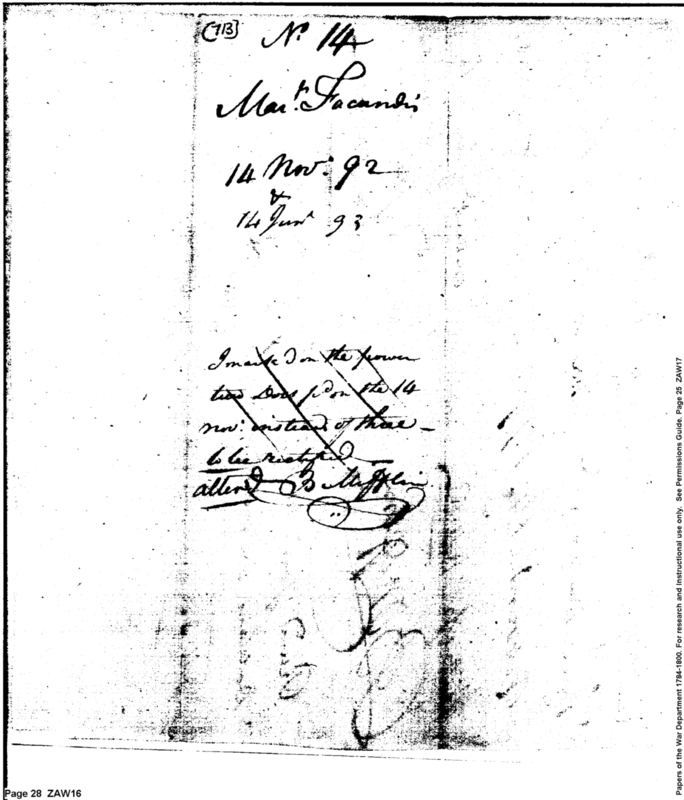 [713]
No. 14
Mart. Facundis
14 Nov. 92
&
14 Jun 93
I mark'd on the power
two Dols pd on the 14
nov: instead of three –
to be rectified
alterd B Mifflin
Page 28 ZAW16
Papers of the War Department 1784-1800. For research and instructional use only. See Permissions Guide. Page 25 ZAW17